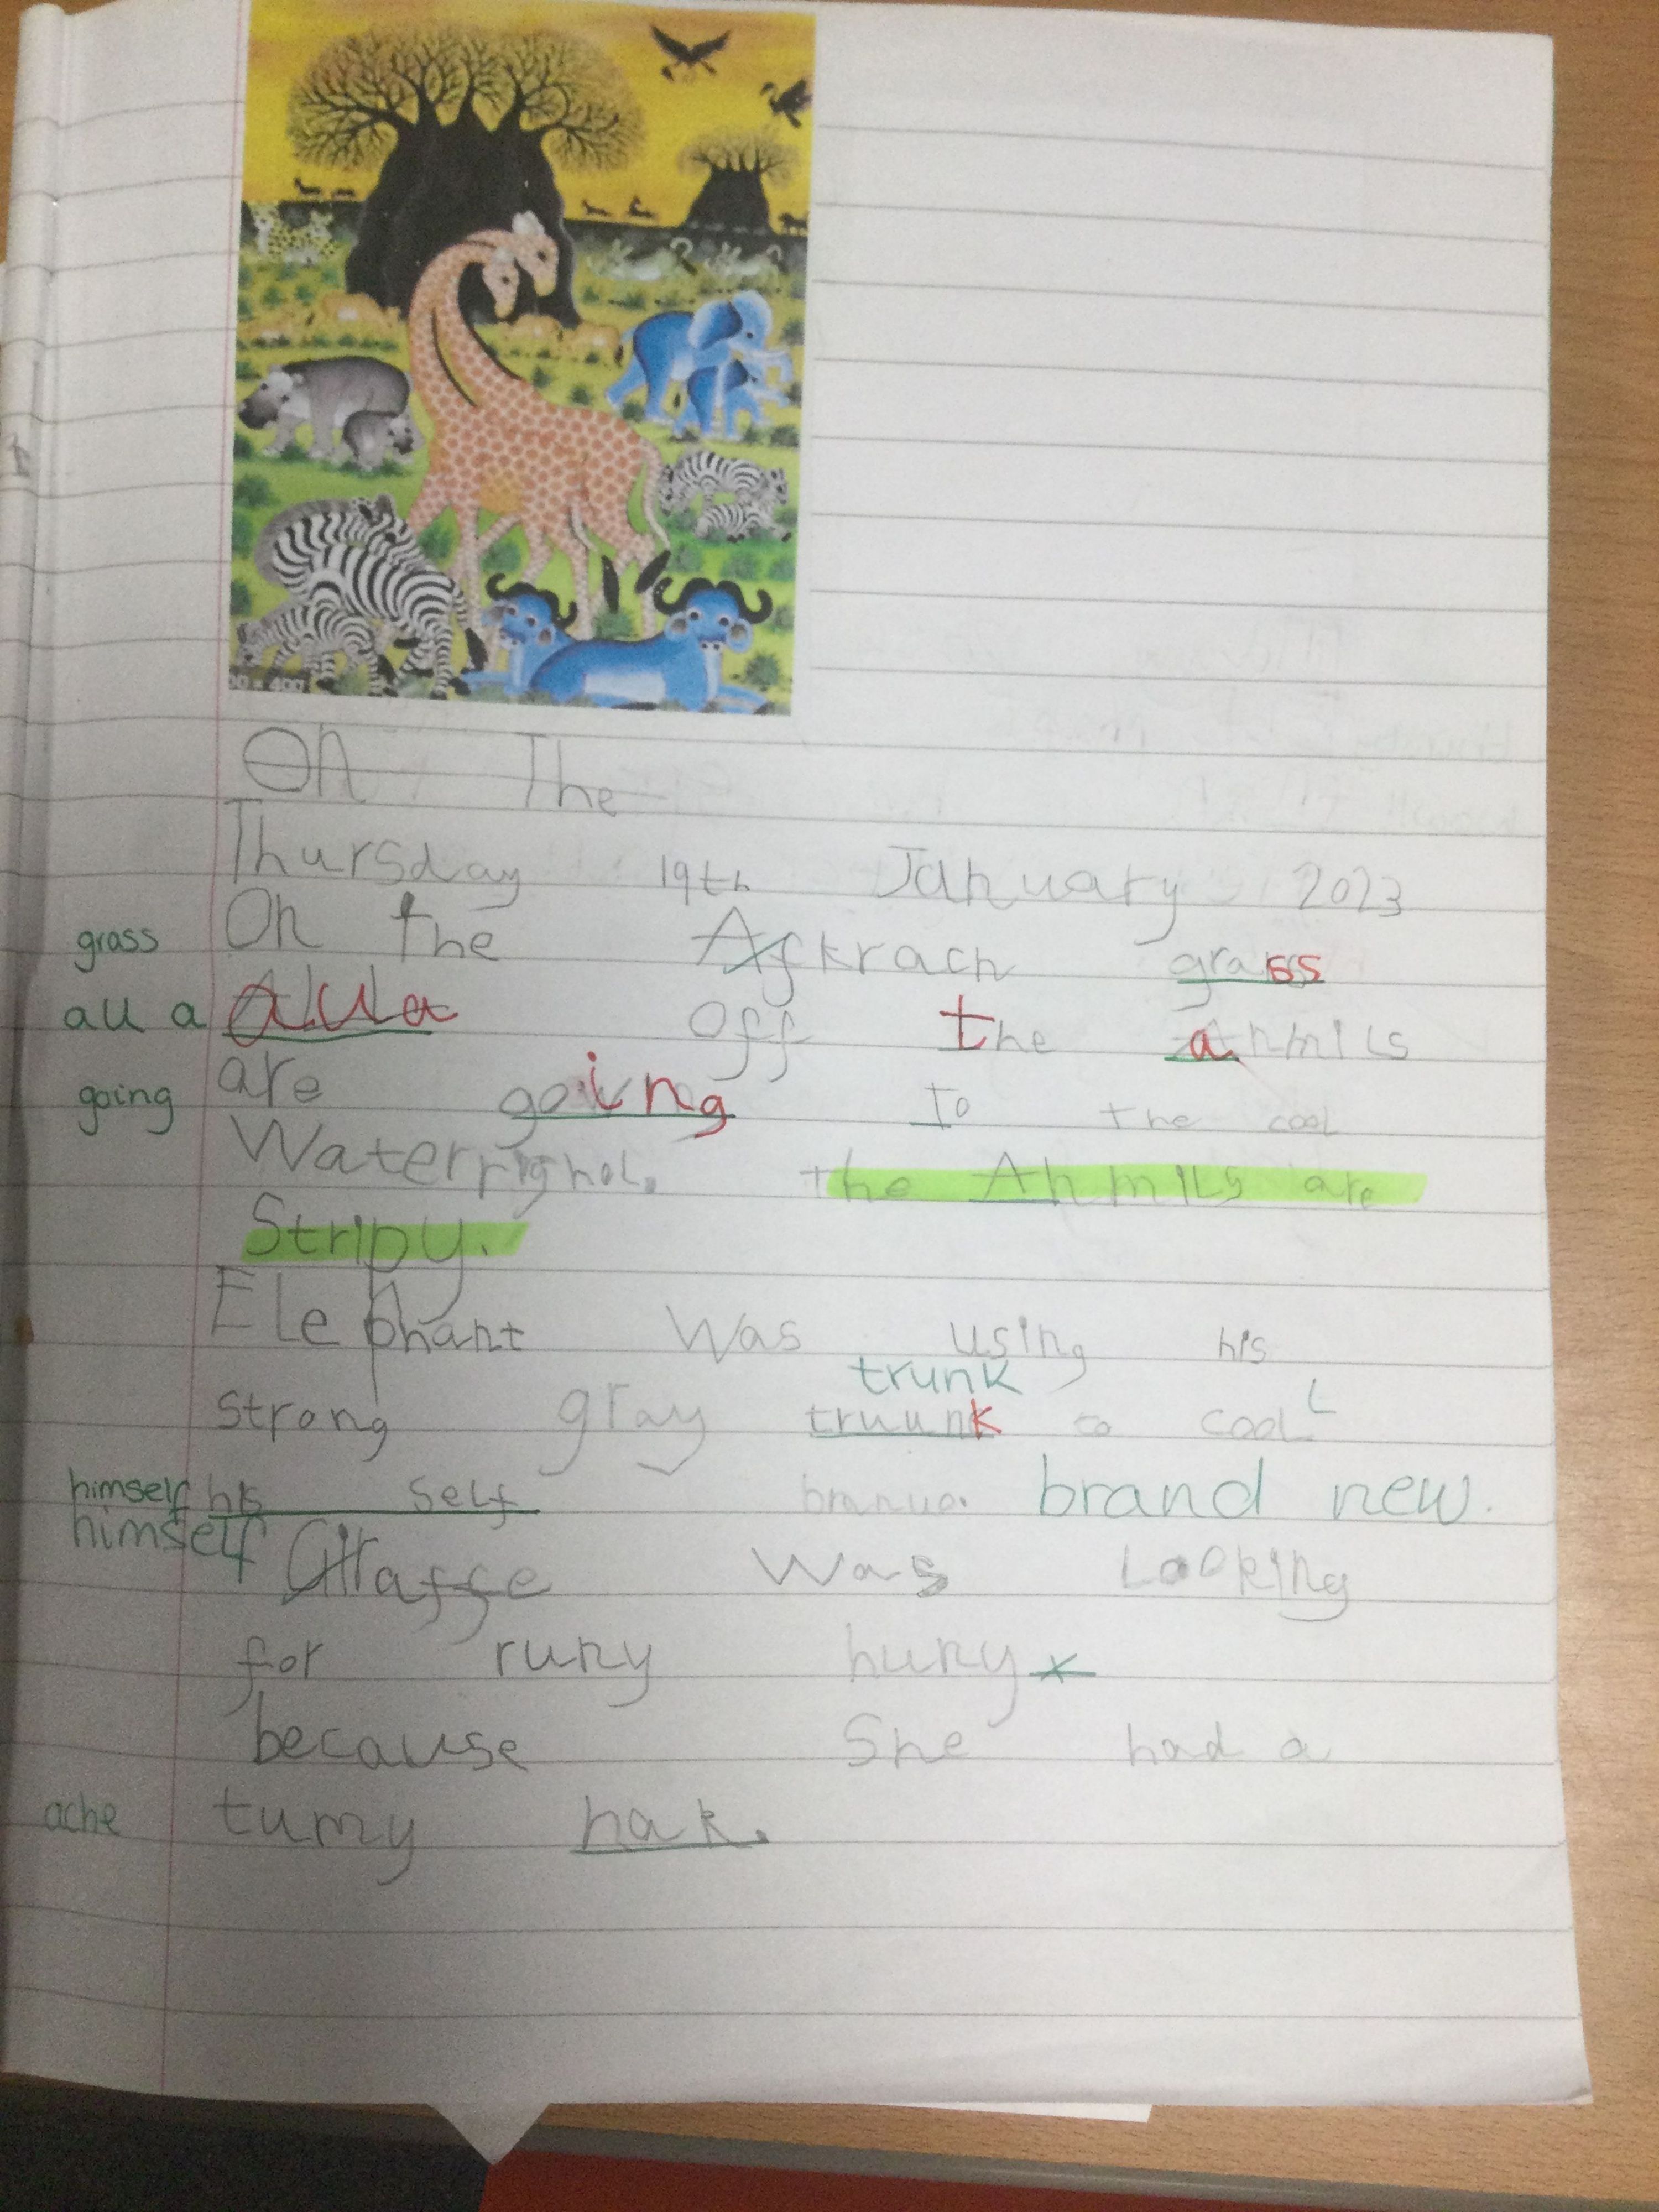 On The
Thursday 19th January 2023
grass On the Afkrach grass
all a alla off the anmils
going are going To the cool
Waterrighol. the Anmils are
Stripy.
Elephant Was using his
trunk
strong gray truunk to cool L
himself his self branuo. brand new.
himself Giraffe Was Looking
for runy huny x
because She had a
ache tumy hak.